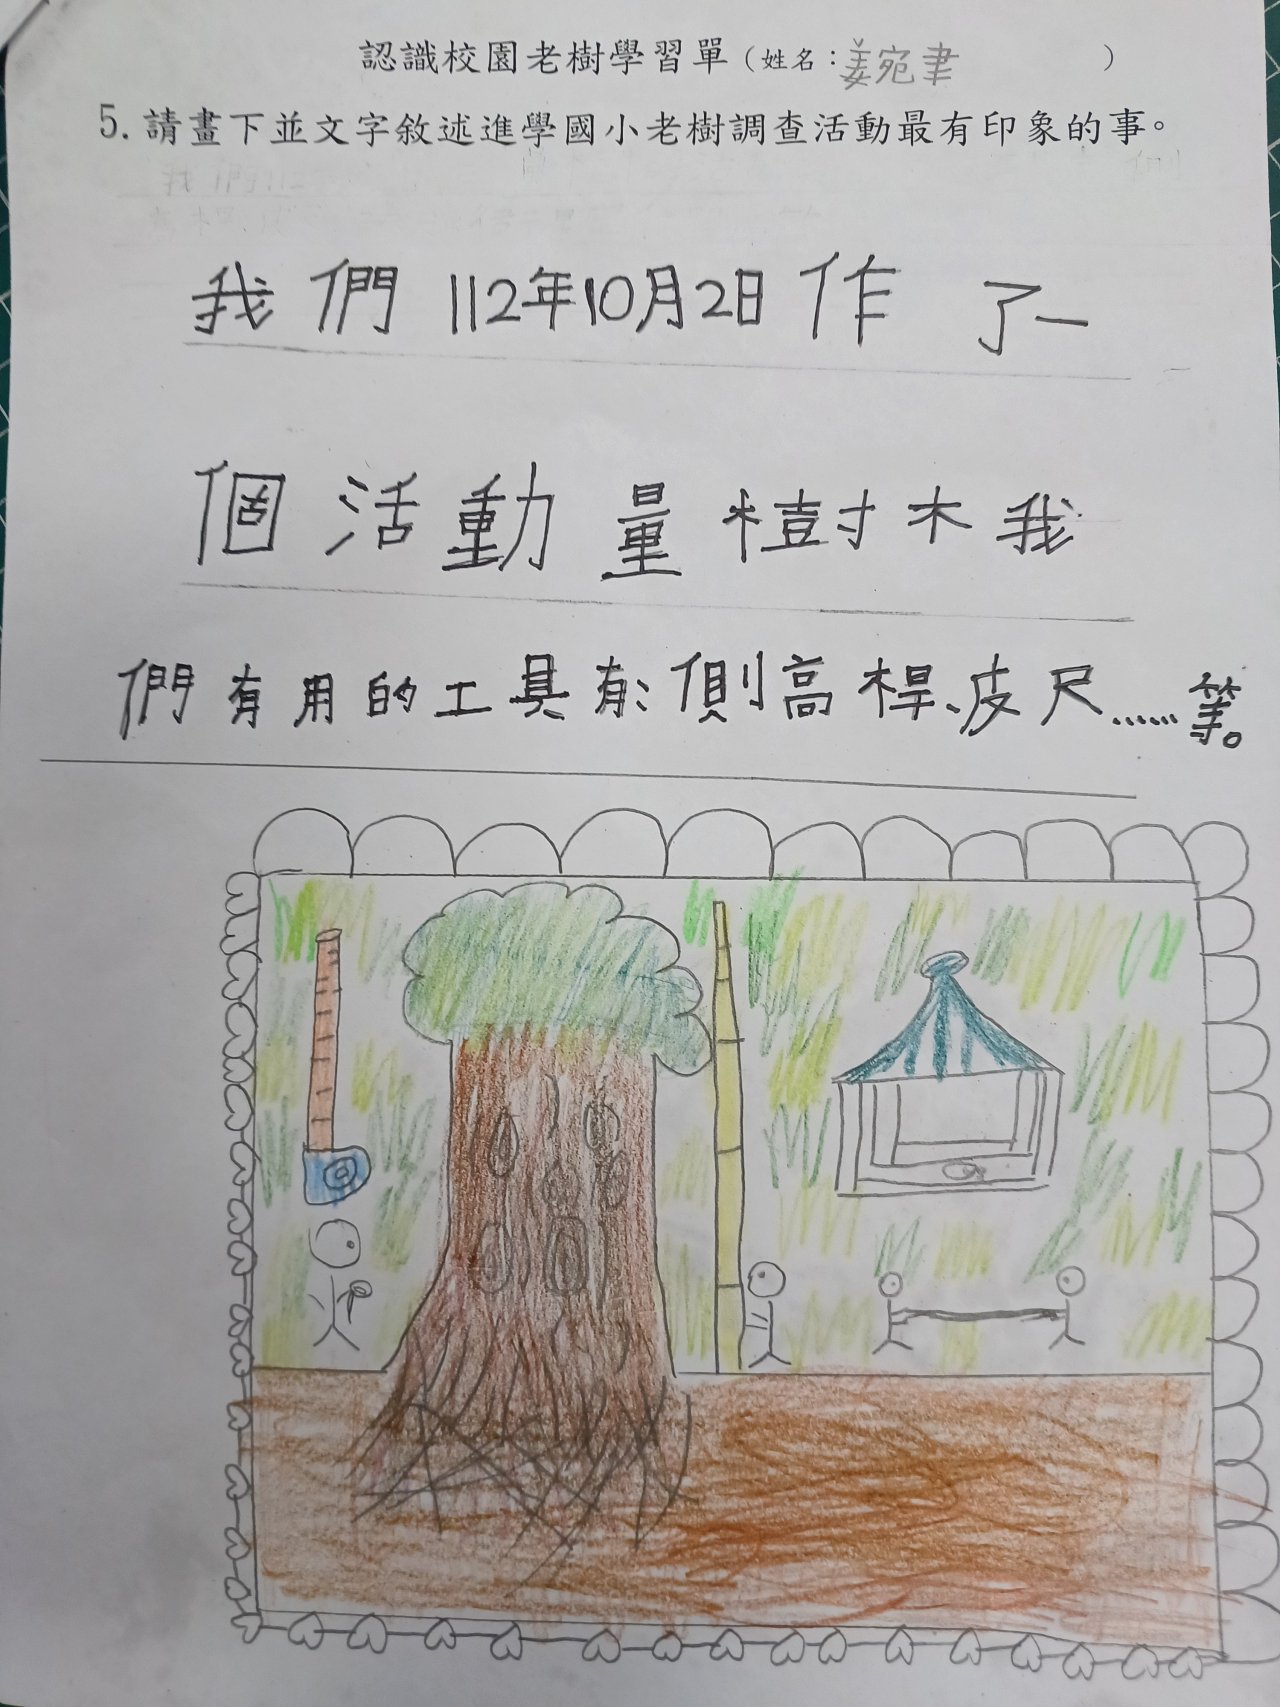 認識校園老樹學習單（姓名：姜宛聿　　　）
5. 請畫下並文字敘述進學國小老樹調查活動最有印象的事。
我們112年10月2日作了一
個活動量樹木我
們有用的工具有:側高桿、皮尺……等。